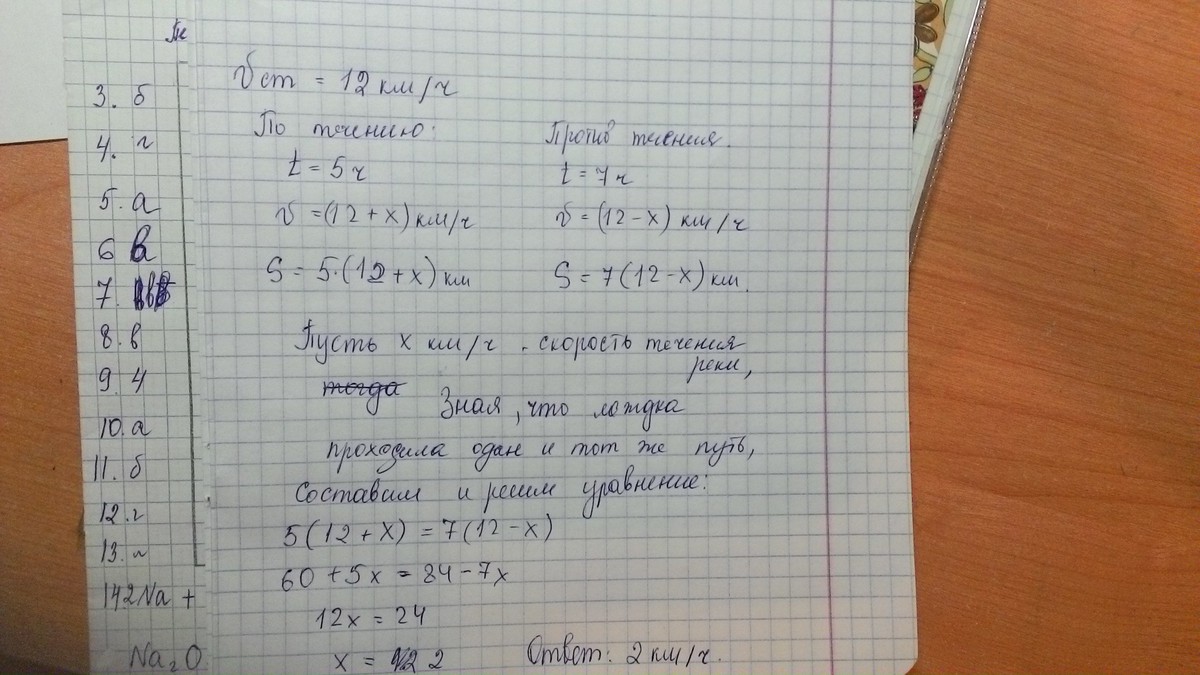 3. б
4. г
5. а
6 в
7.
8. в
9. 4
10. а
11. б
12. г
13. г
14 2Na +
Na₂O
Vст = 12 км/ч
По течению:
t = 5 ч
v = (12 + x) км/ч
S = 5·(12 + x) км
Против течения.
t = 7 ч
v = (12 - x) км/ч
S = 7(12 - x) км.
Пусть x км/ч - скорость течения
реки,
тогда Зная, что лождка
проходила один и тот же путь,
составим и решим уравнение:
5(12 + x) = 7(12 - x)
60 + 5x = 84 - 7x
12x = 24
x = 2
Ответ: 2 км/ч.